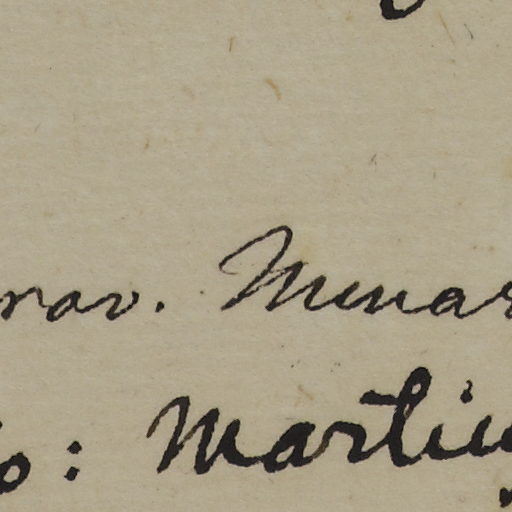 rov. Minas
o: Martiu